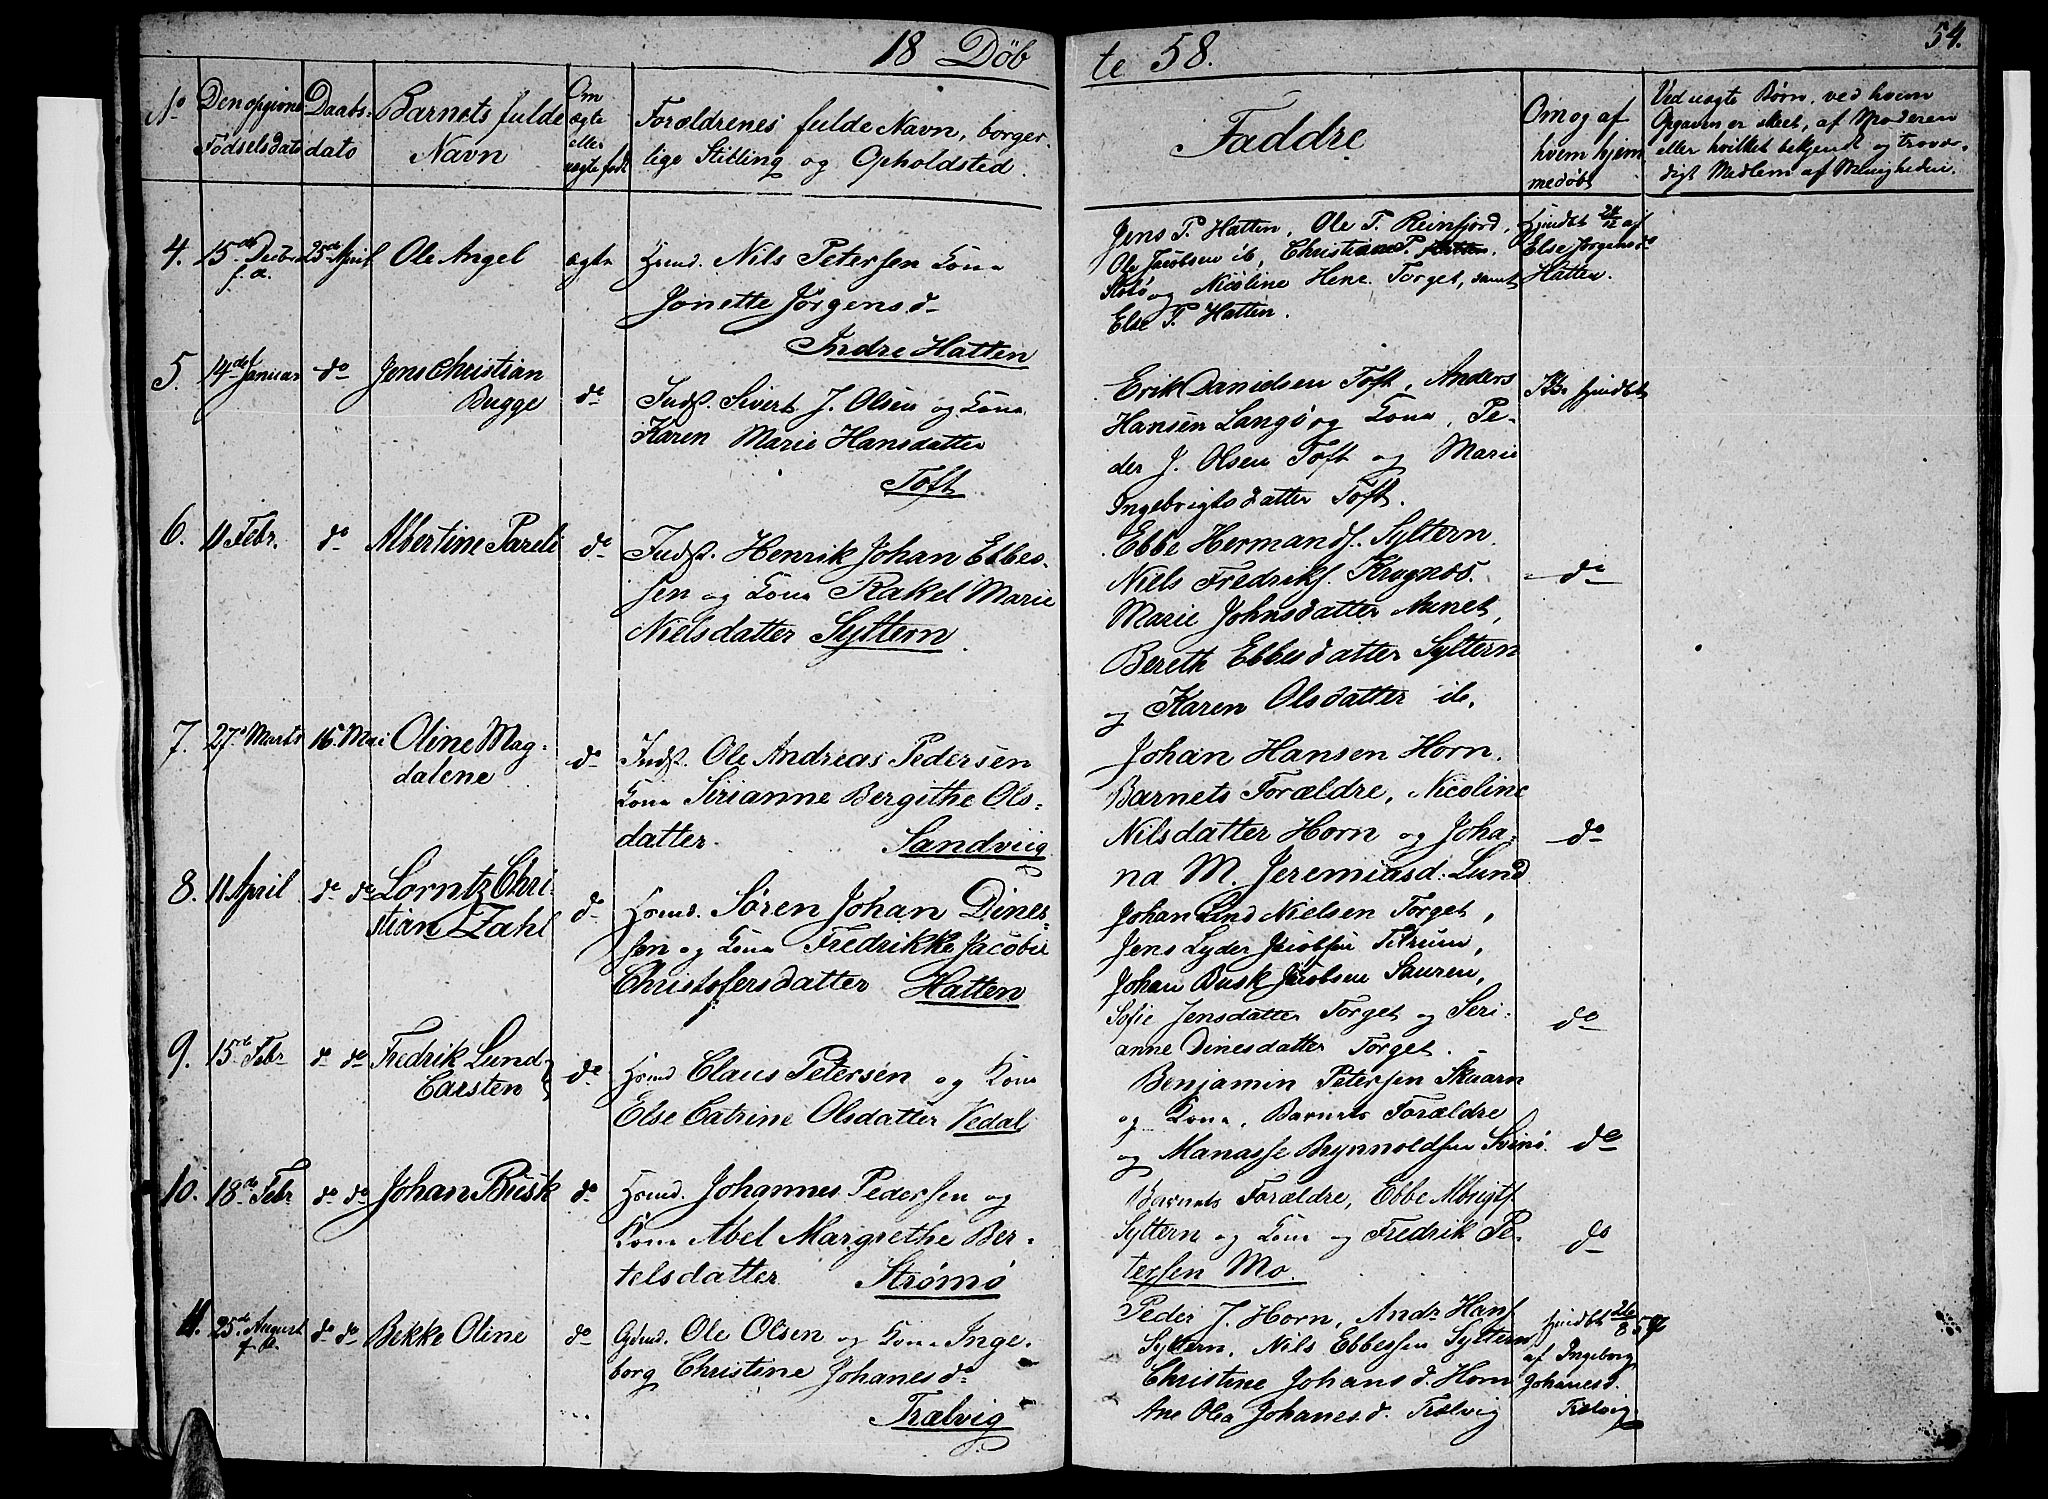 18 Döb
te 58.
54.
No
Den opgivne
Fødselsdato
Daabs-
dato
Barnets fulde
Navn
Om
ægte
eller
uægte født
Forældrenes fulde Navn, borger
lige Stilling og Opholdsted.
Faddre
Om og af
hvem hjem
medøbt
Ved uægte Børn, ved hvem
Opgaven er skeet, af Moderen
eller hvilket bekjendt og trovær-
digt Medlem af Menigheden.
4. 15de Decbr f. a. 25de April Ole Angel ægte
Hsmd. Nils Petersen Kone
Jonette Jørgensd-
Indre Hatten
Jens P. Hatten, Ole T. Reinfjord,
Ole Jacobsen ib, Christian P.
og Nicoline Hene. Torget, samt
Else P. Hatten.
Hjmdbt af
Else Jørgensd-
Hatten.
5. 14de Januar do Jens Christian
Bugge do
Indst. Sivert J. Olsen og Kone
Karen Marie Hansdatter
Toft
Erik Danielsen Toft, Anders
Hansen Langø og Kone, Pe-
der J. Olsen Toft og Marie
Ingebrigtsdatter Toft.
Hjmdbt
6. 11 Febr. do Albertine Pareli do
Indst. Henrik Johan Ebbes-
sen og Kone Rakel Marie
Nielsdatter Syltern.
Ebbe Hermands. Syltern.
Niels Fredriks. Krugnæs.
Marie Johnsdatter Aunet,
Bereth Ebbesdatter Syltern
og Karen Olsdatter ib.
do
7. 27. Marts 16. Mai Oline Mag-
dalene do
Indst. Ole Andreas Pedersen
Kone Sirianne Bergithe Ols-
datter. Sandviig
Johan Hansen Horn.
Barnets Forældre, Nicoline
Nilsdatter Horn og Joha-
na M. Jeremiasd. Lund
do
8. 11 April do do Lorntz Chri-
stian Zahl do
Hsmd. Søren Johan Dines-
sen og Kone Fredrikke Jacobie
Christofersdatter Hatten
Johan Lind Nielsen Torget,
Jens Lyder Jacobsen Tetrum,
Johan Busk Jacobsen Sauren,
Sofie Jensdatter Torget og Seri-
anne Dinesdatter Torget.
do
9. 15de Febr do do Fredrik Lund
Carsten do
Hsmd Claus Petersen og Kone
Else Catrine Olsdatter Vedal
Benjamin Petersen Skaarn
og Kone, Barnets Forældre
og Manasse Brynnoldsen Svinø.
do
10. 18de Febr do do Johan Busk do
Hsmd. Johannes Pedersen og
Kone Abel Margrethe Ber-
telsdatter Strømø
Barnets Forældre, Ebbe Albrigts
Syltern og Kone og Fredrik Pe-
tersen Mo.
do
11. 25de August f. a. do do Bekke Oline do
Gdmd. Ole Olsen og Kone Inge-
borg Christine Johanesd-
Trælvig
Peder J. Horn, Andr. Hans
Syltern, Nils Ebbessen Syltern
Christine Johansd. Horn
Ane Olea Johanesd. Trælvig
Hjmdbt 26/8 57
af Ingeborg
Johanesd.
Trælvig